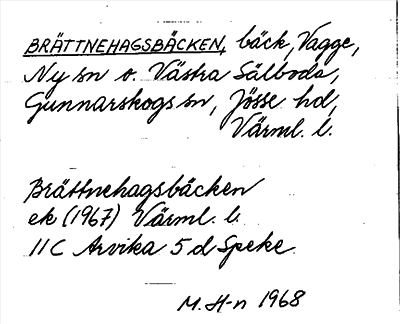 BRÄTTNEHAGSBÄCKEN, bäck, Vagge,
Ny sn o. Västra Sälboda,
Gunnarskogs sn, Jösse hd,
Värml. l.
Brättnehagsbäcken
ek (1967) Värml. l.
11C Arvika 5d Speke
M. H-n 1968